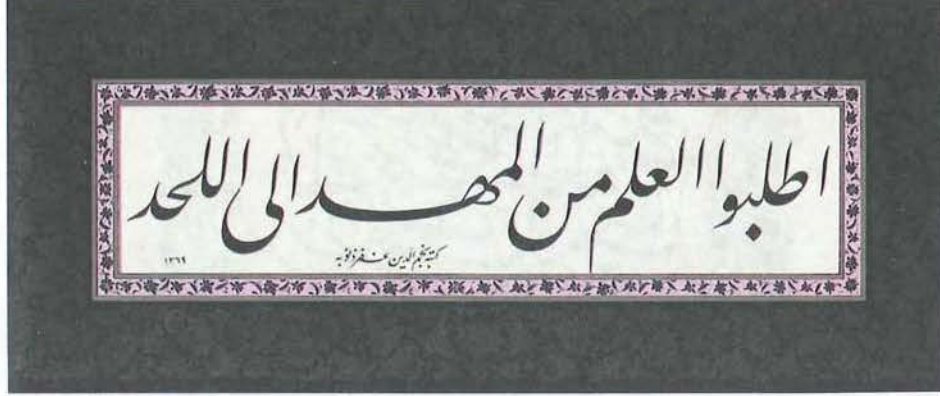 اطلبوا العلم من المهد الی اللحد
کتبه نجم الدین غفر ذنوبه
۱۳۶۹